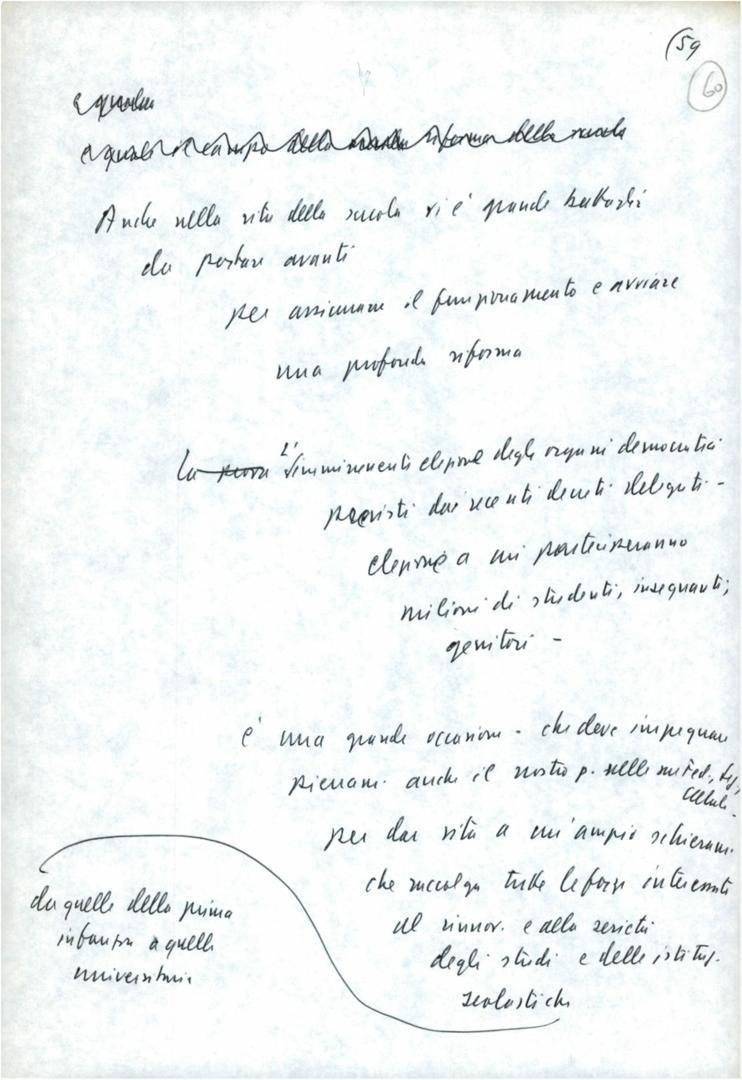 (59
60
e quella
e quello il campo della riforma della scuola
Anche nella vita della scuola vi è grande battaglia
da portare avanti
per assicurare il funzionamento e avviare
una profonda riforma
La nuova L'imminente elezione degli organi democratici
previsti dai recenti decreti delegati -
elezione a cui parteciperanno
milioni di studenti, insegnanti,
genitori -
è una grande occasione - che deve impegnare
pienam. anche il nostro p. nelle sue Fed., Sez.,
Cellule -
per dar vita a un'ampio schieram.
che raccolga tutte le forze interessate
al rinnov. e alla serietà
degli studi e delle istituz.
scolastiche
da quelle della prima
infanzia a quelle
universitarie